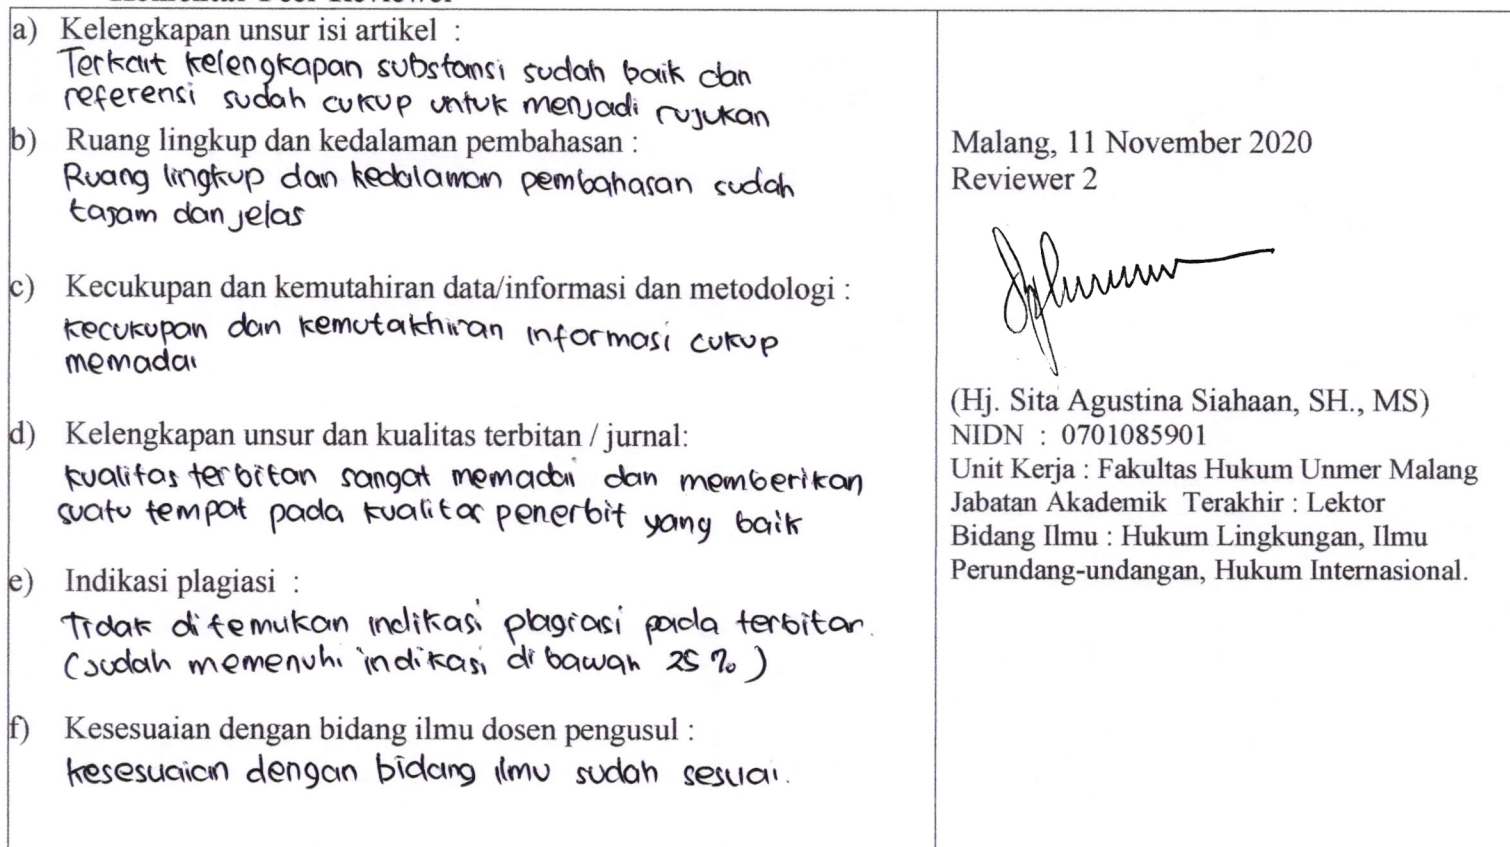 Komentar Peer Reviewer
a) Kelengkapan unsur isi artikel :
Terkait kelengkapan substansi sudah baik dan
referensi sudah cukup untuk menjadi rujukan
b) Ruang lingkup dan kedalaman pembahasan :
Ruang lingkup dan kedalaman pembahasan sudah
tajam dan jelas
c) Kecukupan dan kemutahiran data/informasi dan metodologi :
kecukupan dan kemutakhiran informasi cukup
memadai
d) Kelengkapan unsur dan kualitas terbitan / jurnal:
kualitas terbitan sangat memadai dan memberikan
suatu tempat pada kualitas penerbit yang baik
e) Indikasi plagiasi :
Tidak ditemukan indikasi plagiasi pada terbitan.
(sudah memenuhi indikasi di bawah 25 %)
f) Kesesuaian dengan bidang ilmu dosen pengusul :
kesesuaian dengan bidang ilmu sudah sesuai.
Malang, 11 November 2020
Reviewer 2
(Hj. Sita Agustina Siahaan, SH., MS)
NIDN : 0701085901
Unit Kerja : Fakultas Hukum Unmer Malang
Jabatan Akademik Terakhir : Lektor
Bidang Ilmu : Hukum Lingkungan, Ilmu
Perundang-undangan, Hukum Internasional.